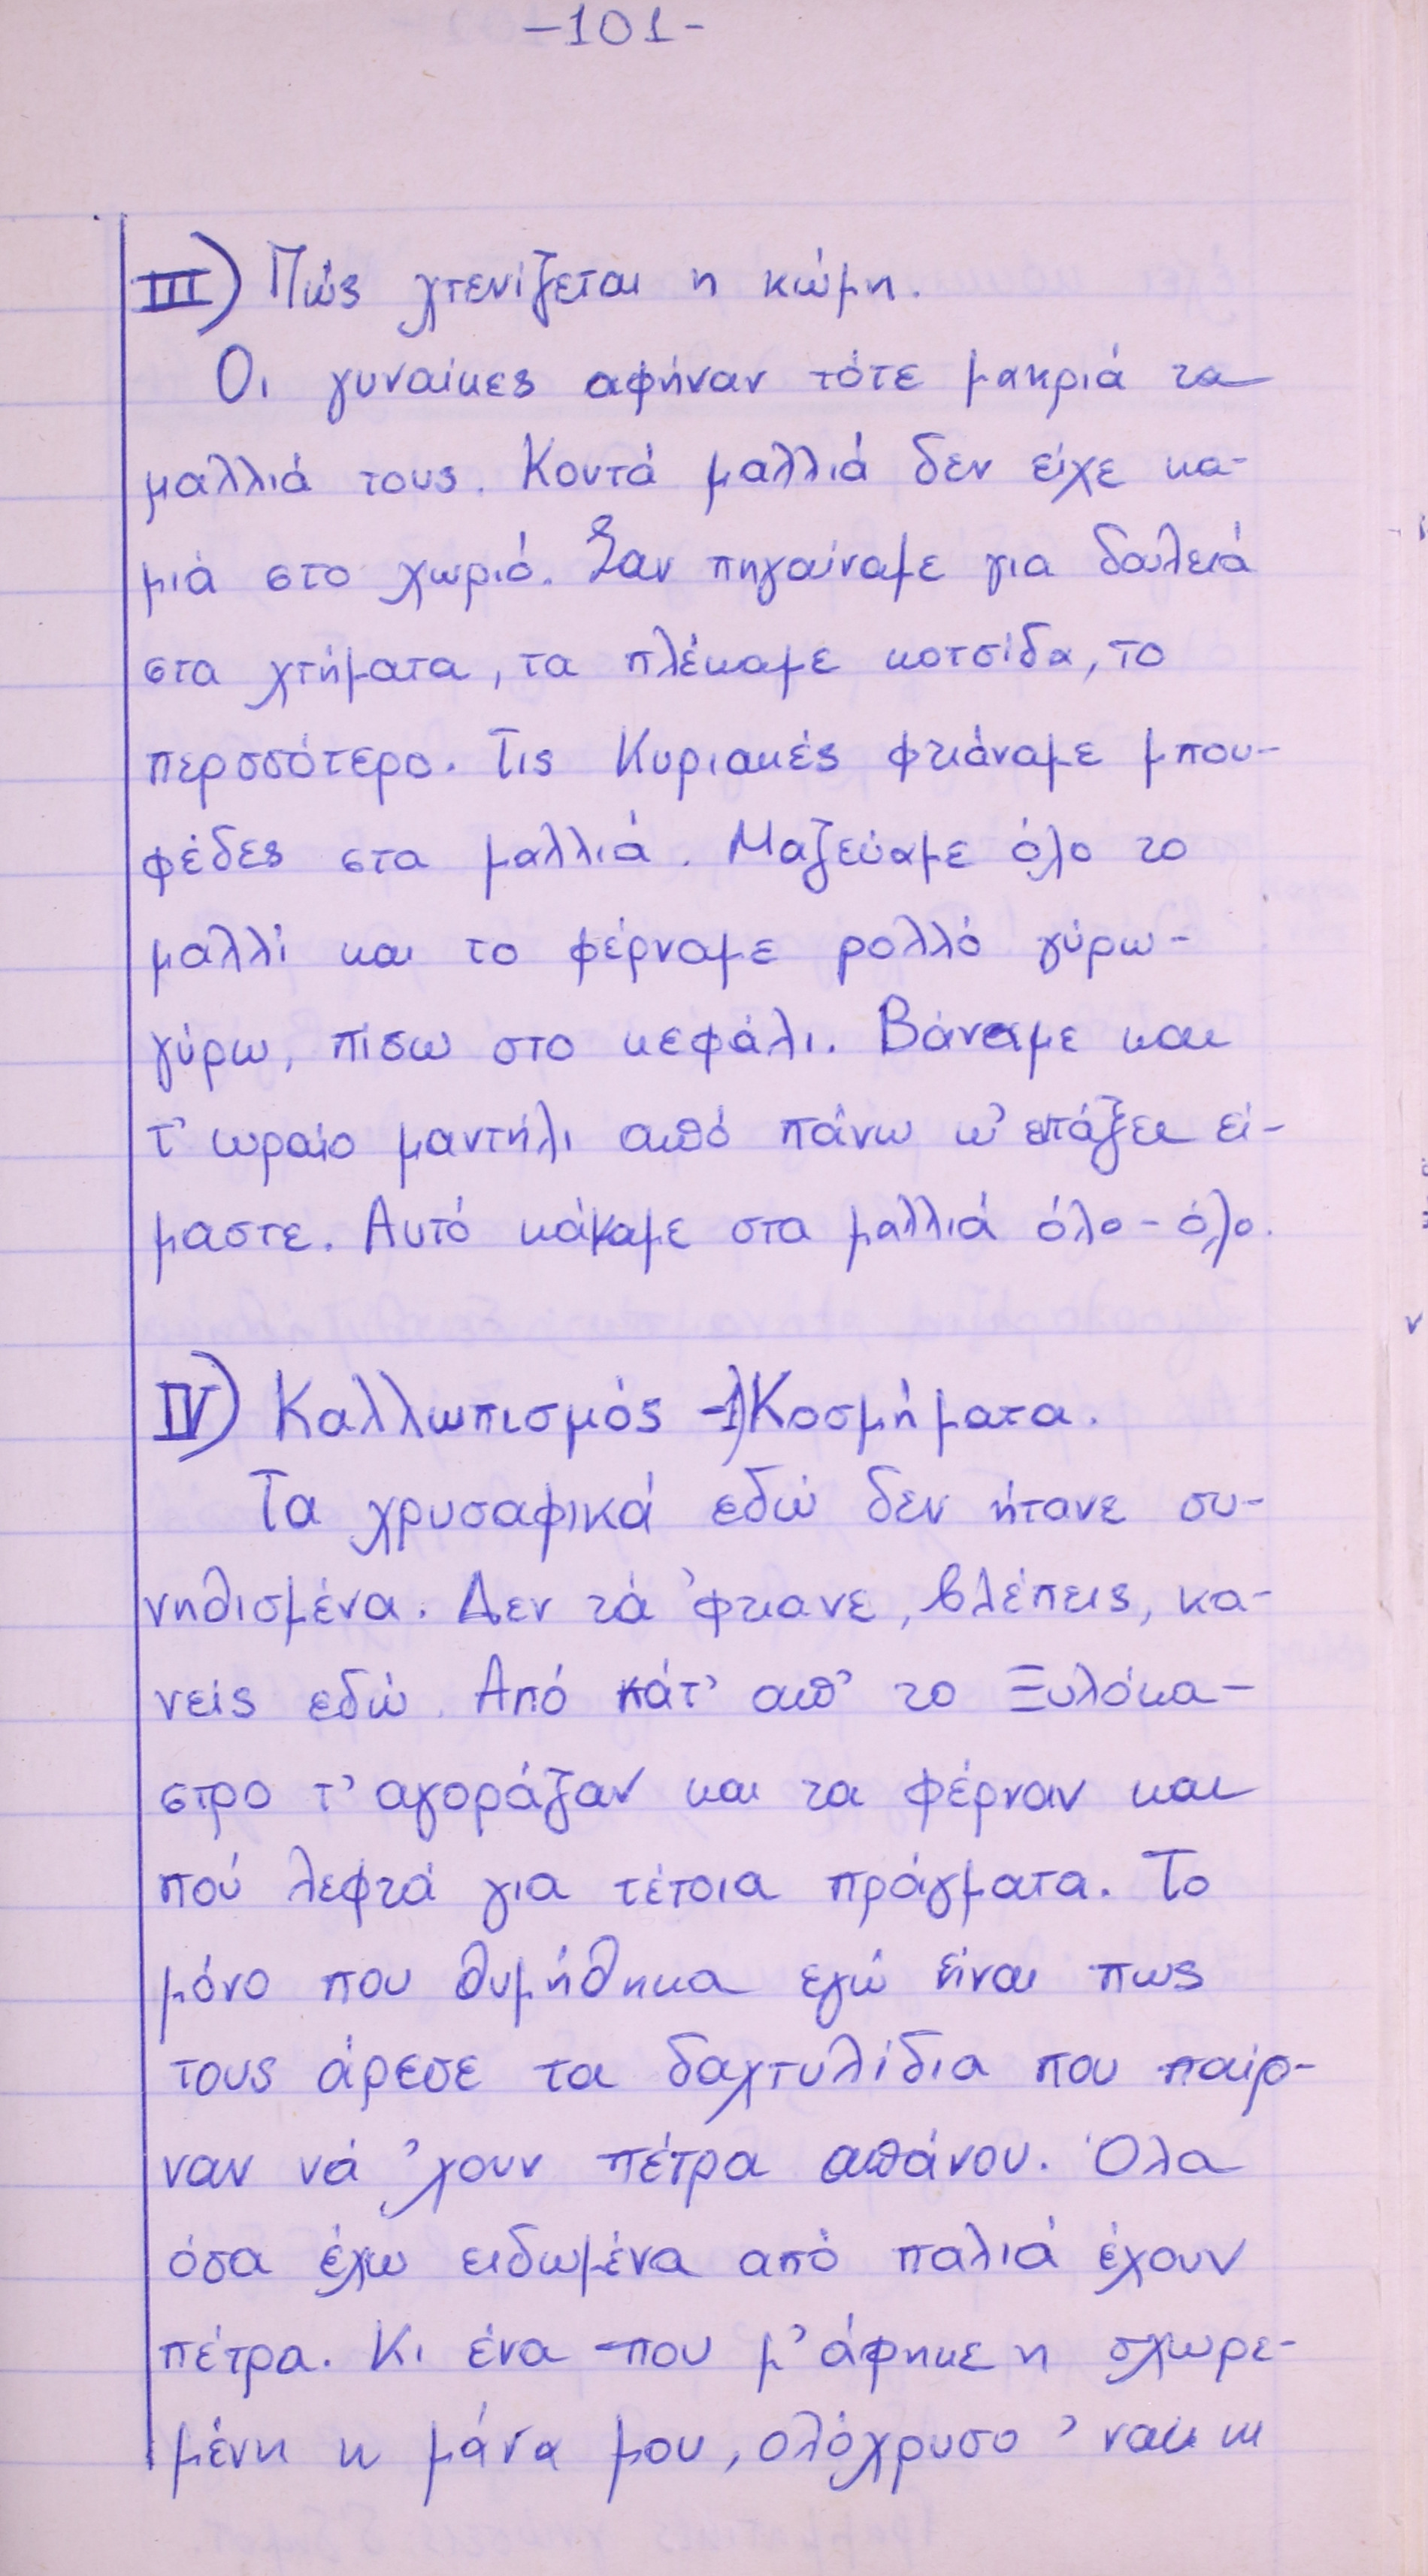 -101-
III) Πώς χτενίζεται η κώμη.
Οι γυναίκες αφήναν τότε μακριά τα
μαλλιά τους. Κοντά μαλλιά δεν είχε κα-
μιά στο χωριό. Σαν πηγαίναμε για δουλειά
στα χτήματα, τα πλέκαμε κοτσίδα, το
περσσότερο. Τις Κυριακές φτιάναμε μπου-
φέδες στα μαλλιά. Μαζεύαμε όλο το
μαλλί και το φέρναμε ρολλό γύρω-
γύρω, πίσω στο κεφάλι. Βάναμε και
τ' ωραίο μαντήλι από πάνω κ' εντάξει εί-
μαστε. Αυτό κάναμε στα μαλλιά όλο-όλο.
IV) Καλλωπισμός -1) Κοσμήματα.
Τα χρυσαφικά εδώ δεν ήτανε συ-
νηθισμένα. Δεν τά 'φτιανε, βλέπεις, κα-
νείς εδώ. Από κάτ' απ' το Ξυλόκα-
στρο τ' αγοράζαν και τα φέρναν και
πού λεφτά για τέτοια πράγματα. Το
μόνο που θυμήθηκα εγώ είναι πως
τους άρεσε τα δαχτυλίδια που παίρ-
ναν νά 'χουν πέτρα απάνου. Όλα
όσα έχω ειδωμένα από παλιά έχουν
πέτρα. Κι ένα που μ' άφηκε η σχωρε-
μένη η μάνα μου, ολόχρυσο 'ναι κι